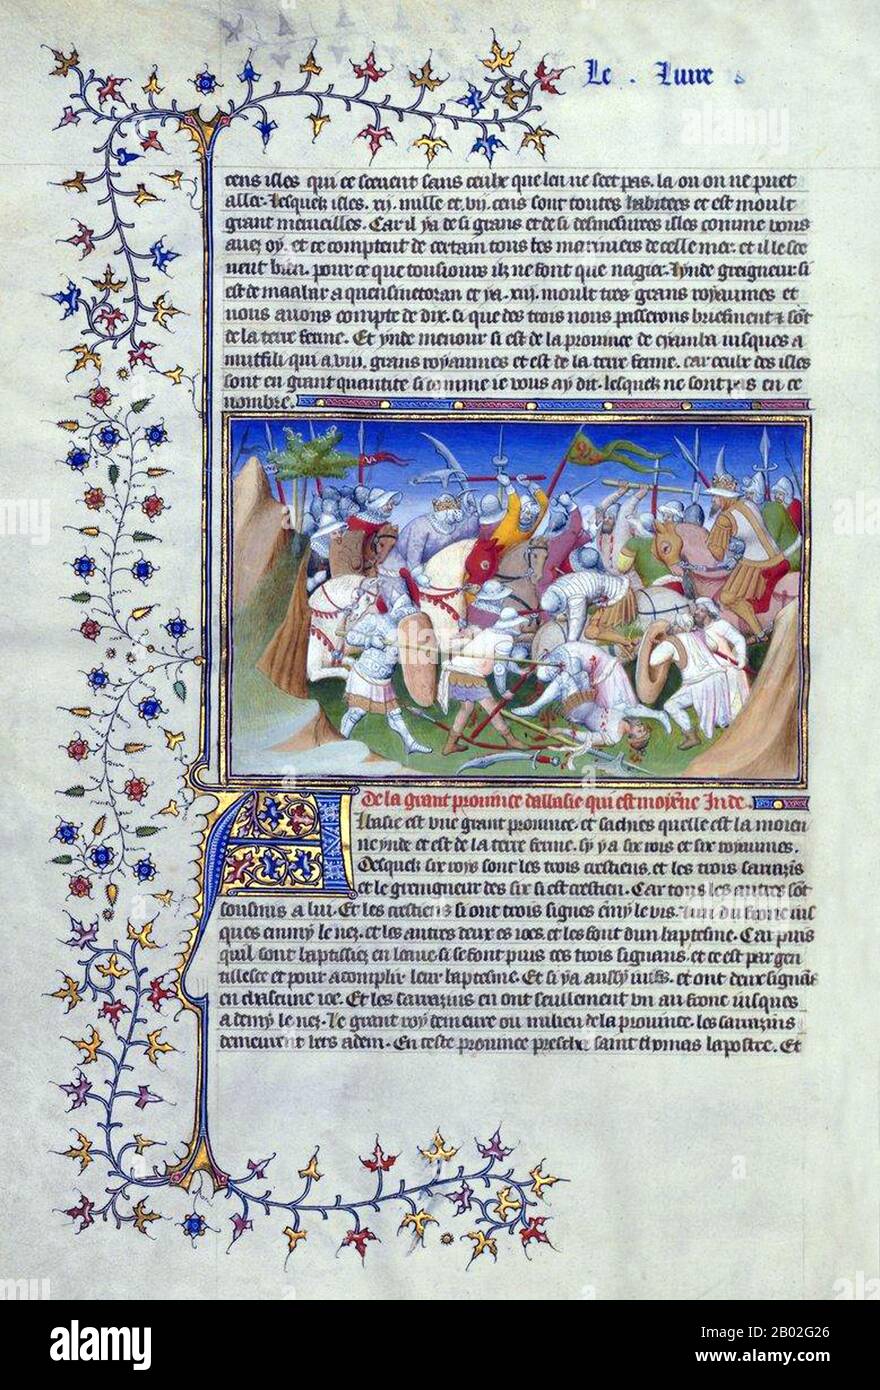 Le . Liure
cens isles qui ce scevent sans ceulx que len ne scet pas. la ou on ne puet
aller. Lesquelx isles. xij. mille et vij. cens sont toutes habitees et est moult
grant merueilles. Car il ya de si grans et de si desmesurees isles comme vous
auez oy. et ce comptent de certain tous les mariniers de celle mer. et il le sce
uent bien. pour ce que tousiours ilz ne font que nagier. Ynde greigneur si
est de maabar a quensmetoran et ya .xiij. moult tres grans royaumes et
nous auons compte de dix. si que des trois nous passerons briefment & sōt
de la terre ferme. Et ynde menour si est de la prouince de cyamba iusques a
mutfili qui a .viij. grans royaumes et est de la terre ferme. car ceulx des isles
sont en grant quantite si comme ie vous ay dit. lesquelx ne sont pas en ce
nombre.
De la grant prouince dabasie qui est moyēne Inde.
Abasie est vne grant prouince. et sachies quelle est la moien
ne ynde et est de la terre ferme. sy ya six rois et six royaumes.
Desquelx six roys sont les trois crestiens, et les trois sarrazīs
et le greingneur des six si est crestien. Car tous les autres sōt
sousmis a lui. Et les crestiens si ont trois signes ēmy le vis. lun du front ius
ques emmy le nez. et les autres deux es ioes. et les font dun baptesme. Car puis
quil sont baptisiez en leaue si se font puis ces trois signaus. et ce est par gen
tillesce et pour acomplir leur baptesme. Et si ya aussy iuifs. et ont deux signaus
en chascune ioe. Et les sarrazins en ont seullement vn au front iusques
a demy le nez. Le grant roy demeure ou milieu de la prouince. les sarrazins
demeurent vers adem. En ceste prouince prescha saint thomas lapostre. Et
alamy
Image ID: 2B02G26
www.alamy.com